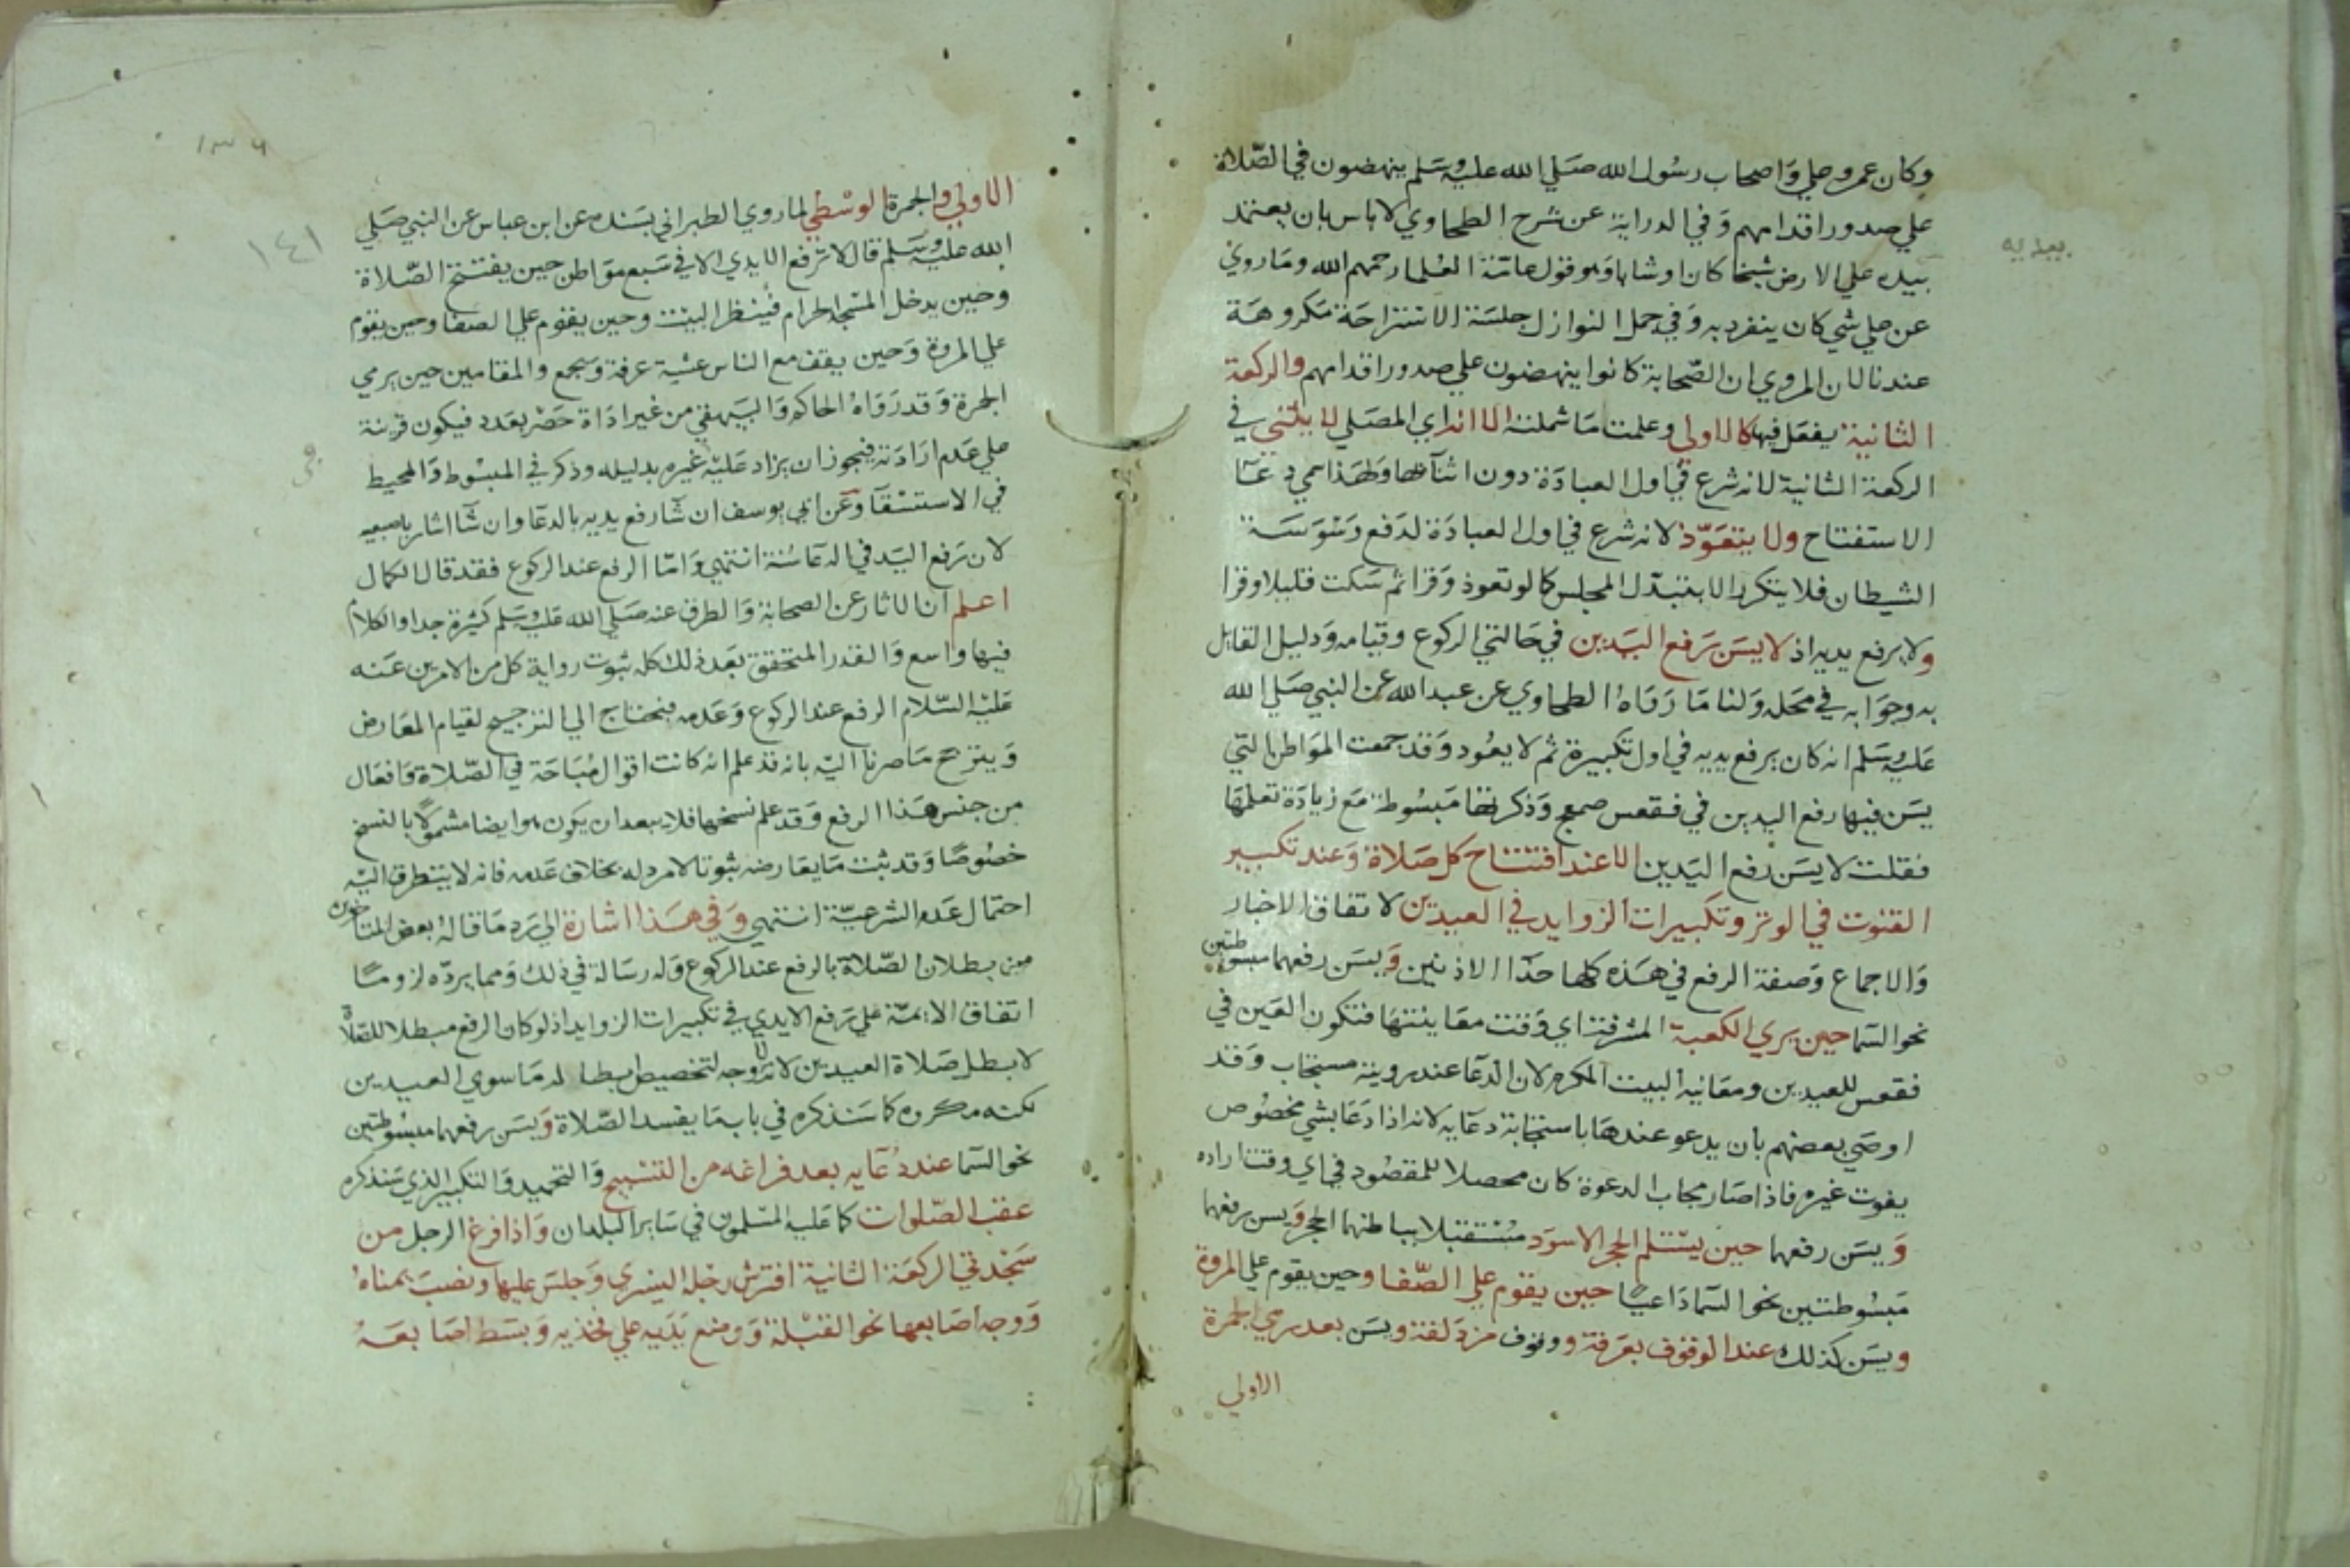 وكان عمر وعلي واصحاب رسول الله صلي الله عليه وسلم ينهضون في الصلاة
علي صدور اقدامهم وفي الدراية عن شرح الطحاوي لا باس بان يعتمد
بيديه علي الارض شيخا كان او شابا وهو قول عامة العلما رحمهم الله وما روي
عن علي شي كان ينفرد به وفي جمل النوازل جلسة الاستراحة مكروهة
عندنا لان المروي ان الصحابة كانوا ينهضون علي صدور اقدامهم والركعة
الثانية يفعل فيها كالاولي وعلمت ما شملته الا انه اي المصلي لا يثني في
الركعة الثانية لانه شرع في اول العبادة دون اثنائها ولهذا سمي دعا
الاستفتاح ولا يتعوذ لانه شرع في اول العبادة لدفع وسوسة
الشيطان فلا يتكرر الا بتبدل المجلس كما لو تعوذ وقرا ثم سكت قليلا وقرا
ولا يرفع يديه اذ لا يسن رفع اليدين في حالتي الركوع وقيامه ودليل القايل
به وجوابه في محله ولنا ما رواه الطحاوي عن عبد الله عن النبي صلي الله
عليه وسلم انه كان يرفع يديه في اول تكبيرة ثم لا يعود وقد جمعت المواطن التي
يسن فيها رفع اليدين في فقعس صمعج وذكرتها مبسوطة مع زيادة تعلمها
فقلت لا يسن رفع اليدين الا عند افتتاح كل صلاة وعند تكبير
القنوت في الوتر وتكبيرات الزوايد في العيدين لاتفاق الاخبار
والاجماع وصفة الرفع في هذه كلها حذا الاذنين ويسن رفعهما مبسوطتين
نحو السما حين يري الكعبة المشرفة اي وقت معاينتها فتكون العين في
فقعس للعيدين ومعاينة البيت المكرم لان الدعا عند رويته مستجاب وقد
اوصي بعضهم بان يدعو عندها باستجابة دعايه لانه اذا دعا بشي مخصوص
يفوت غيره فاذا صار مجاب الدعوة كان محصلا للمقصود في اي وقت اراده
ويسن رفعهما حين يستلم الحجر الاسود مستقبلا بباطنهما الحجر ويسن رفعهما
مبسوطتين نحو السما داعيا حين يقوم علي الصفا وحين يقوم علي المروة
ويسن كذلك عند الوقوف بعرفة ووقوف مزدلفة ويسن بعد رمي الجمرة
الاولي
بيديه
١٣٦
١٤١
الاولي والجمرة الوسطي لما روي الطبراني بسنده عن ابن عباس عن النبي صلي
الله عليه وسلم قال لا ترفع الايدي الا في سبع مواطن حين يفتتح الصلاة
وحين يدخل المسجد الحرام فينظر البيت وحين يقوم علي الصفا وحين يقوم
علي المروة وحين يقف مع الناس عشية عرفة وبجمع والمقامين حين يرمي
الجمرة وقد رواه الحاكم والبيهقي من غير اداة حصر بعدد فيكون قرينة
علي عدم ارادته فيجوز ان يزاد عليه غيره بدليله وذكر في المبسوط والمحيط
في الاستسقا وعن ابي يوسف ان شا رفع يديه بالدعا وان شا اشار باصبعيه
لان رفع اليد في الدعا سنة انتهي واما الرفع عند الركوع فقد قال الكمال
اعلم ان الاثار عن الصحابة والطرق عنه صلي الله عليه وسلم كثيرة جدا والكلام
فيها واسع والقدر المتحقق بعد ذلك كله ثبوت رواية كل من الامرين عنه
عليه السلام الرفع عند الركوع وعدمه فيحتاج الي الترجيح لقيام المعارض
ويترجح ما صرنا اليه بانه قد علم انه كانت اقوال مباحة في الصلاة وافعال
من جنس هذا الرفع وقد علم نسخها فلا يبعد ان يكون هو ايضا مشمولا بالنسخ
خصوصا وقد ثبت ما يعارضه ثبوتا لا مرد له بخلاف عدمه فانه لا يتطرق اليه
احتمال عدم الشرعية انتهي وفي هذا اشارة الي رد ما قاله بعض المتاخرين
من بطلان الصلاة بالرفع عند الركوع وله رسالة في ذلك ومما يرده لزوما
اتفاق الايمة علي رفع الايدي في تكبيرات الزوايد اذ لو كان الرفع مبطلا للصلاة
لابطل صلاة العيدين لانه لا وجه لتخصيص ابطاله ما سوي العيدين
لكنه مكروه كما سنذكره في باب ما يفسد الصلاة ويسن رفعهما مبسوطتين
نحو السما عند دعايه بعد فراغه من التسبيح والتحميد والتكبير الذي سنذكره
عقب الصلوات كما عليه المسلمون في ساير البلدان واذا فرغ الرجل من
سجدتي الركعة الثانية افترش رجله اليسري وجلس عليها ونصب يمناه
ووجه اصابعها نحو القبلة ووضع يديه علي فخذيه وبسط اصابعه